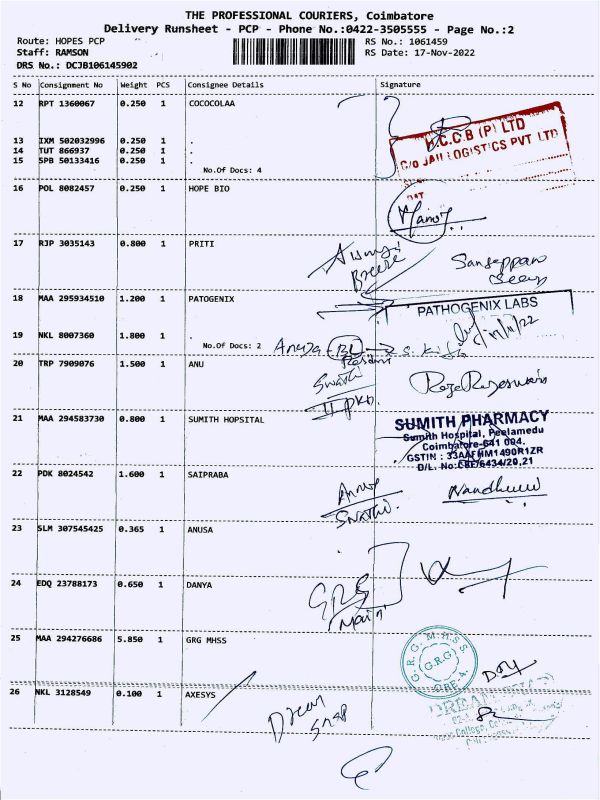 THE PROFESSIONAL COURIERS, Coimbatore
Delivery Runsheet - PCP - Phone No.:0422-3505555 - Page No.:2
Route: HOPES PCP
RS No.: 1061459
Staff: RAMSON
RS Date: 17-Nov-2022
DRS No.: DCJB106145902
S No Consignment No Weight PCS Consignee Details Signature
12 RPT 1360067 0.250 1 COCOCOLAA
H.C.C.B (P) LTD
C/o JAH LOGISTICS PVT LTD
13 IXM 502032996 0.250 1 .
14 TUT 866937 0.250 1 .
15 SPB 50133416 0.250 1 .
No.Of Docs: 4
16 POL 8082457 0.250 1 HOPE BIO
Manoj
17 RJP 3035143 0.800 1 PRITI
Breeze
18 MAA 295934510 1.200 1 PATOGENIX
PATHOGENIX LABS
19 NKL 8007360 1.800 1 .
No.Of Docs: 2
20 TRP 7909076 1.500 1 ANU
Swathi
21 MAA 294583730 0.800 1 SUMITH HOPSITAL
SUMITH PHARMACY
Sumith Hospital, Peelamedu
Coimbatore-641 004.
GSTIN : 33AAFHM1490R1ZR
D/L. No:CBE/6434/20,21
22 PDK 8024542 1.600 1 SAIPRABA
Swathi
23 SLM 307545425 0.365 1 ANUSA
24 EDQ 23788173 0.650 1 DANYA
GRG
Main
25 MAA 294276686 5.850 1 GRG MHSS
G.R.G. M.H.S.S.
(G.R.G)
CBE-4
26 NKL 3128549 0.100 1 AXESYS
Dream
Snap